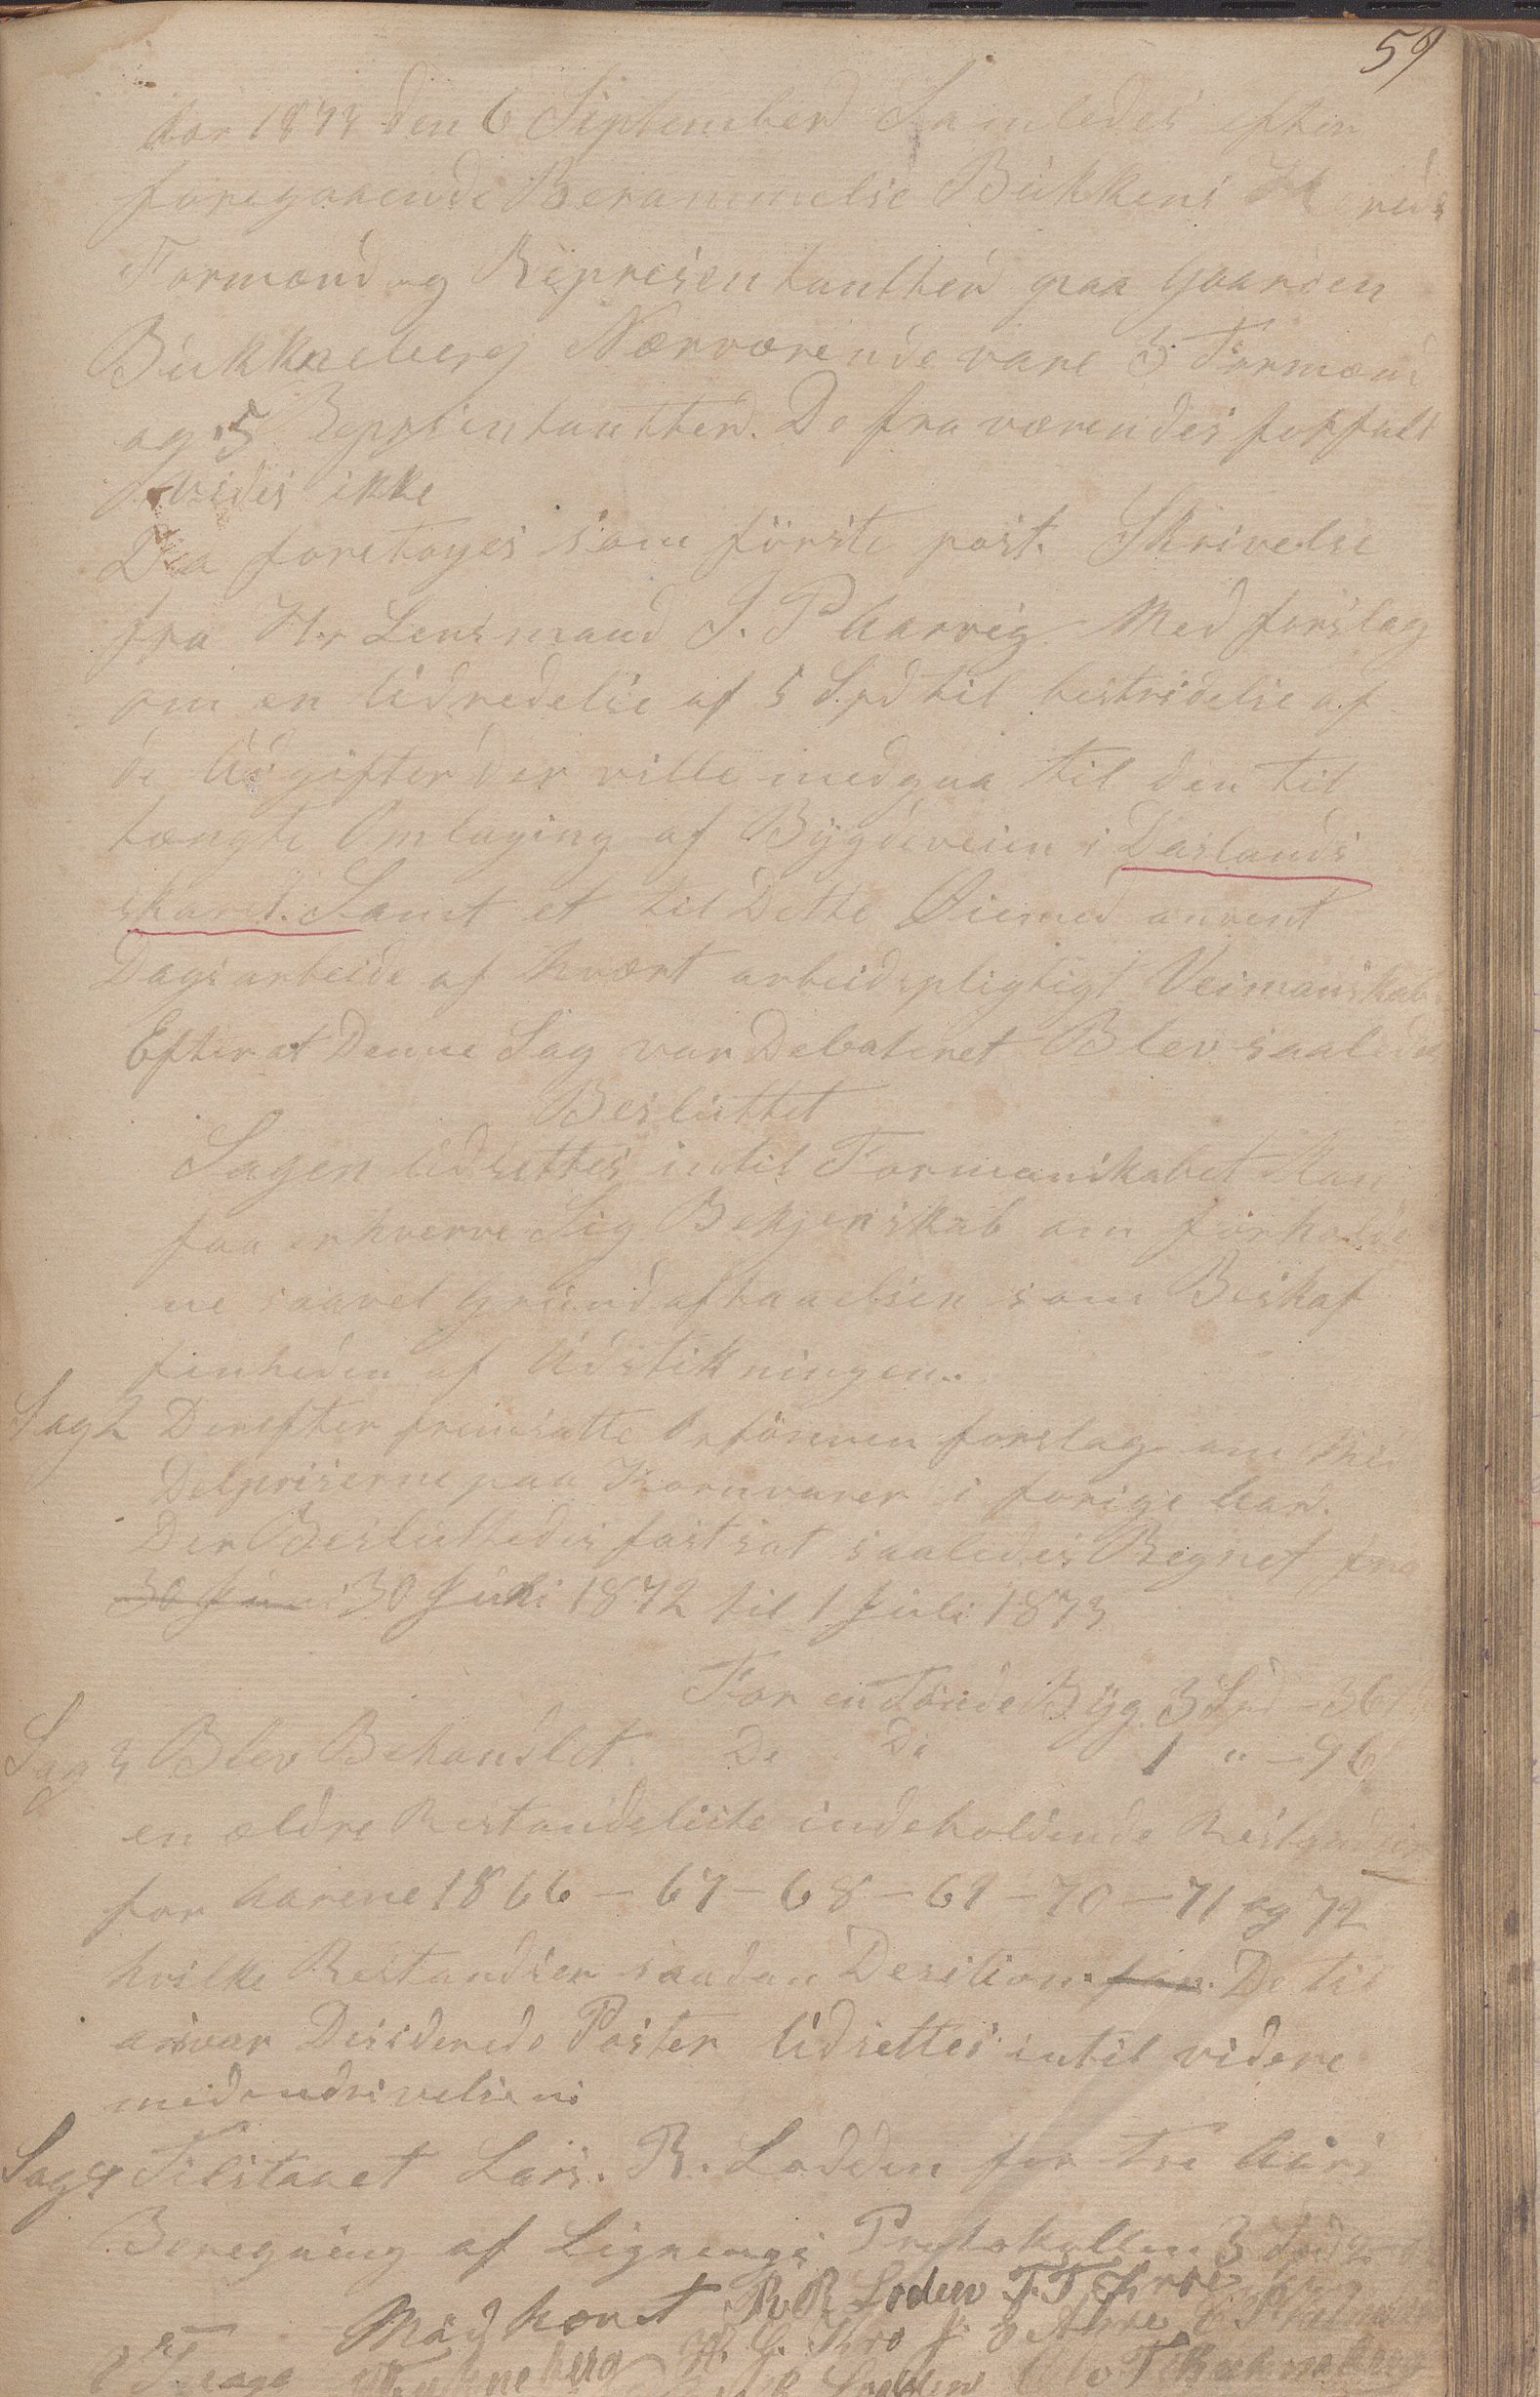 59
Aar 1873 den 6 September Samledes efter
foregaaende Berammelse Bükkens Hereds
Formænd og Representantter paa Gaarden
Bükkneberg Nærværende vare 3 Formænd
og 5 Represintantter. De fra værendes forfald
vides ikke
Da foretoges som förste post. Skrivelse
fra Hr Lensmand J. P Aarvig Med forslag
om en Udredelse af 5 Spd til bestridelse af
de Udgifter der ville medgaa til den til
tængte Omlaging af Bygdeveien i Daslands
skaret. Samt et til Dette Øiemed anvent
Dags arbeide af hvært arbeidspligtigt Veimanskab
Efter at Denne Sag var Debateret Blev saaledes
Besluttet
Sagen Udsettes intil Formanskabet kan
faa erhverve Sig Bekjenskab om forholde
ne saavel Grundaftaaelsen som Beskaf
finheden af Udstikningen.
Sag 2 Derefter fremsatte Orföreren forslag om Mid
Delpriserne paa Kornvarer i forige Aar.
Der Besluttedes fastsat saaledes Regnet fra
30 Juni 30 Juli 1872 til 1 Juli 1873
For en Tönde Byg 3 Spd - 36
Sag 3 Blev Behandlet De De 1 " - 96
en ældre Restandseliste indeholdende Restandser
for Aarene 1866 - 67 - 68 - 69 - 70 - 71 og 72
hvilke Restandser saadan Desition De til
ansvar Desiderede Poster Udsettes intil videre
med indrivelsen
Sag 4 Tilstaaet Lars. R. Lodden for tre Aars
Beregning af Lignings Protokollen 3 Spd
Mads hanst R R Loden T. T. Kroe
H. G. Kro